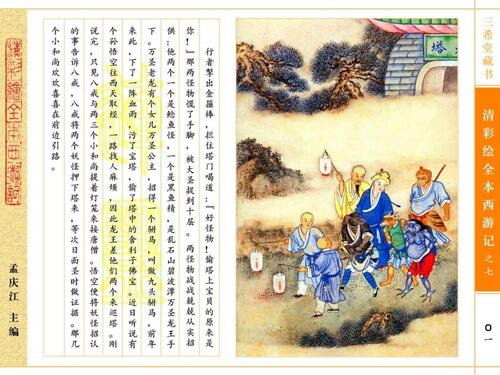 三希堂藏书
清彩绘全本西游记 之七
〇一
塔
行者掣出金箍棒，拦住塔门喝道：“好怪物！偷塔上宝贝的原来是
你！”那两怪物慌了手脚，被大圣捉到十层。两怪物战战兢兢从实招
供：他两个一个是鲶鱼怪，一个是黑鱼精，是乱石山碧波潭万圣龙王手
下。万圣老龙有个女儿万圣公主，招得一个驸马，叫做九头驸马，前年
来此，下了一阵血雨，污了宝塔，偷了塔中的舍利子佛宝。近日听说有
个孙悟空往西天取经，一路找人麻烦，因此龙王差他们两个来巡塔。刚
说完，只见八戒与两三个小和尚提着灯笼来接唐僧。悟空便将妖怪招认
的事告诉八戒，八戒将两个妖怪押下塔来，等次日面圣时做证据。那几
个小和尚欢欢喜喜在前边引路。
孟庆江 主编